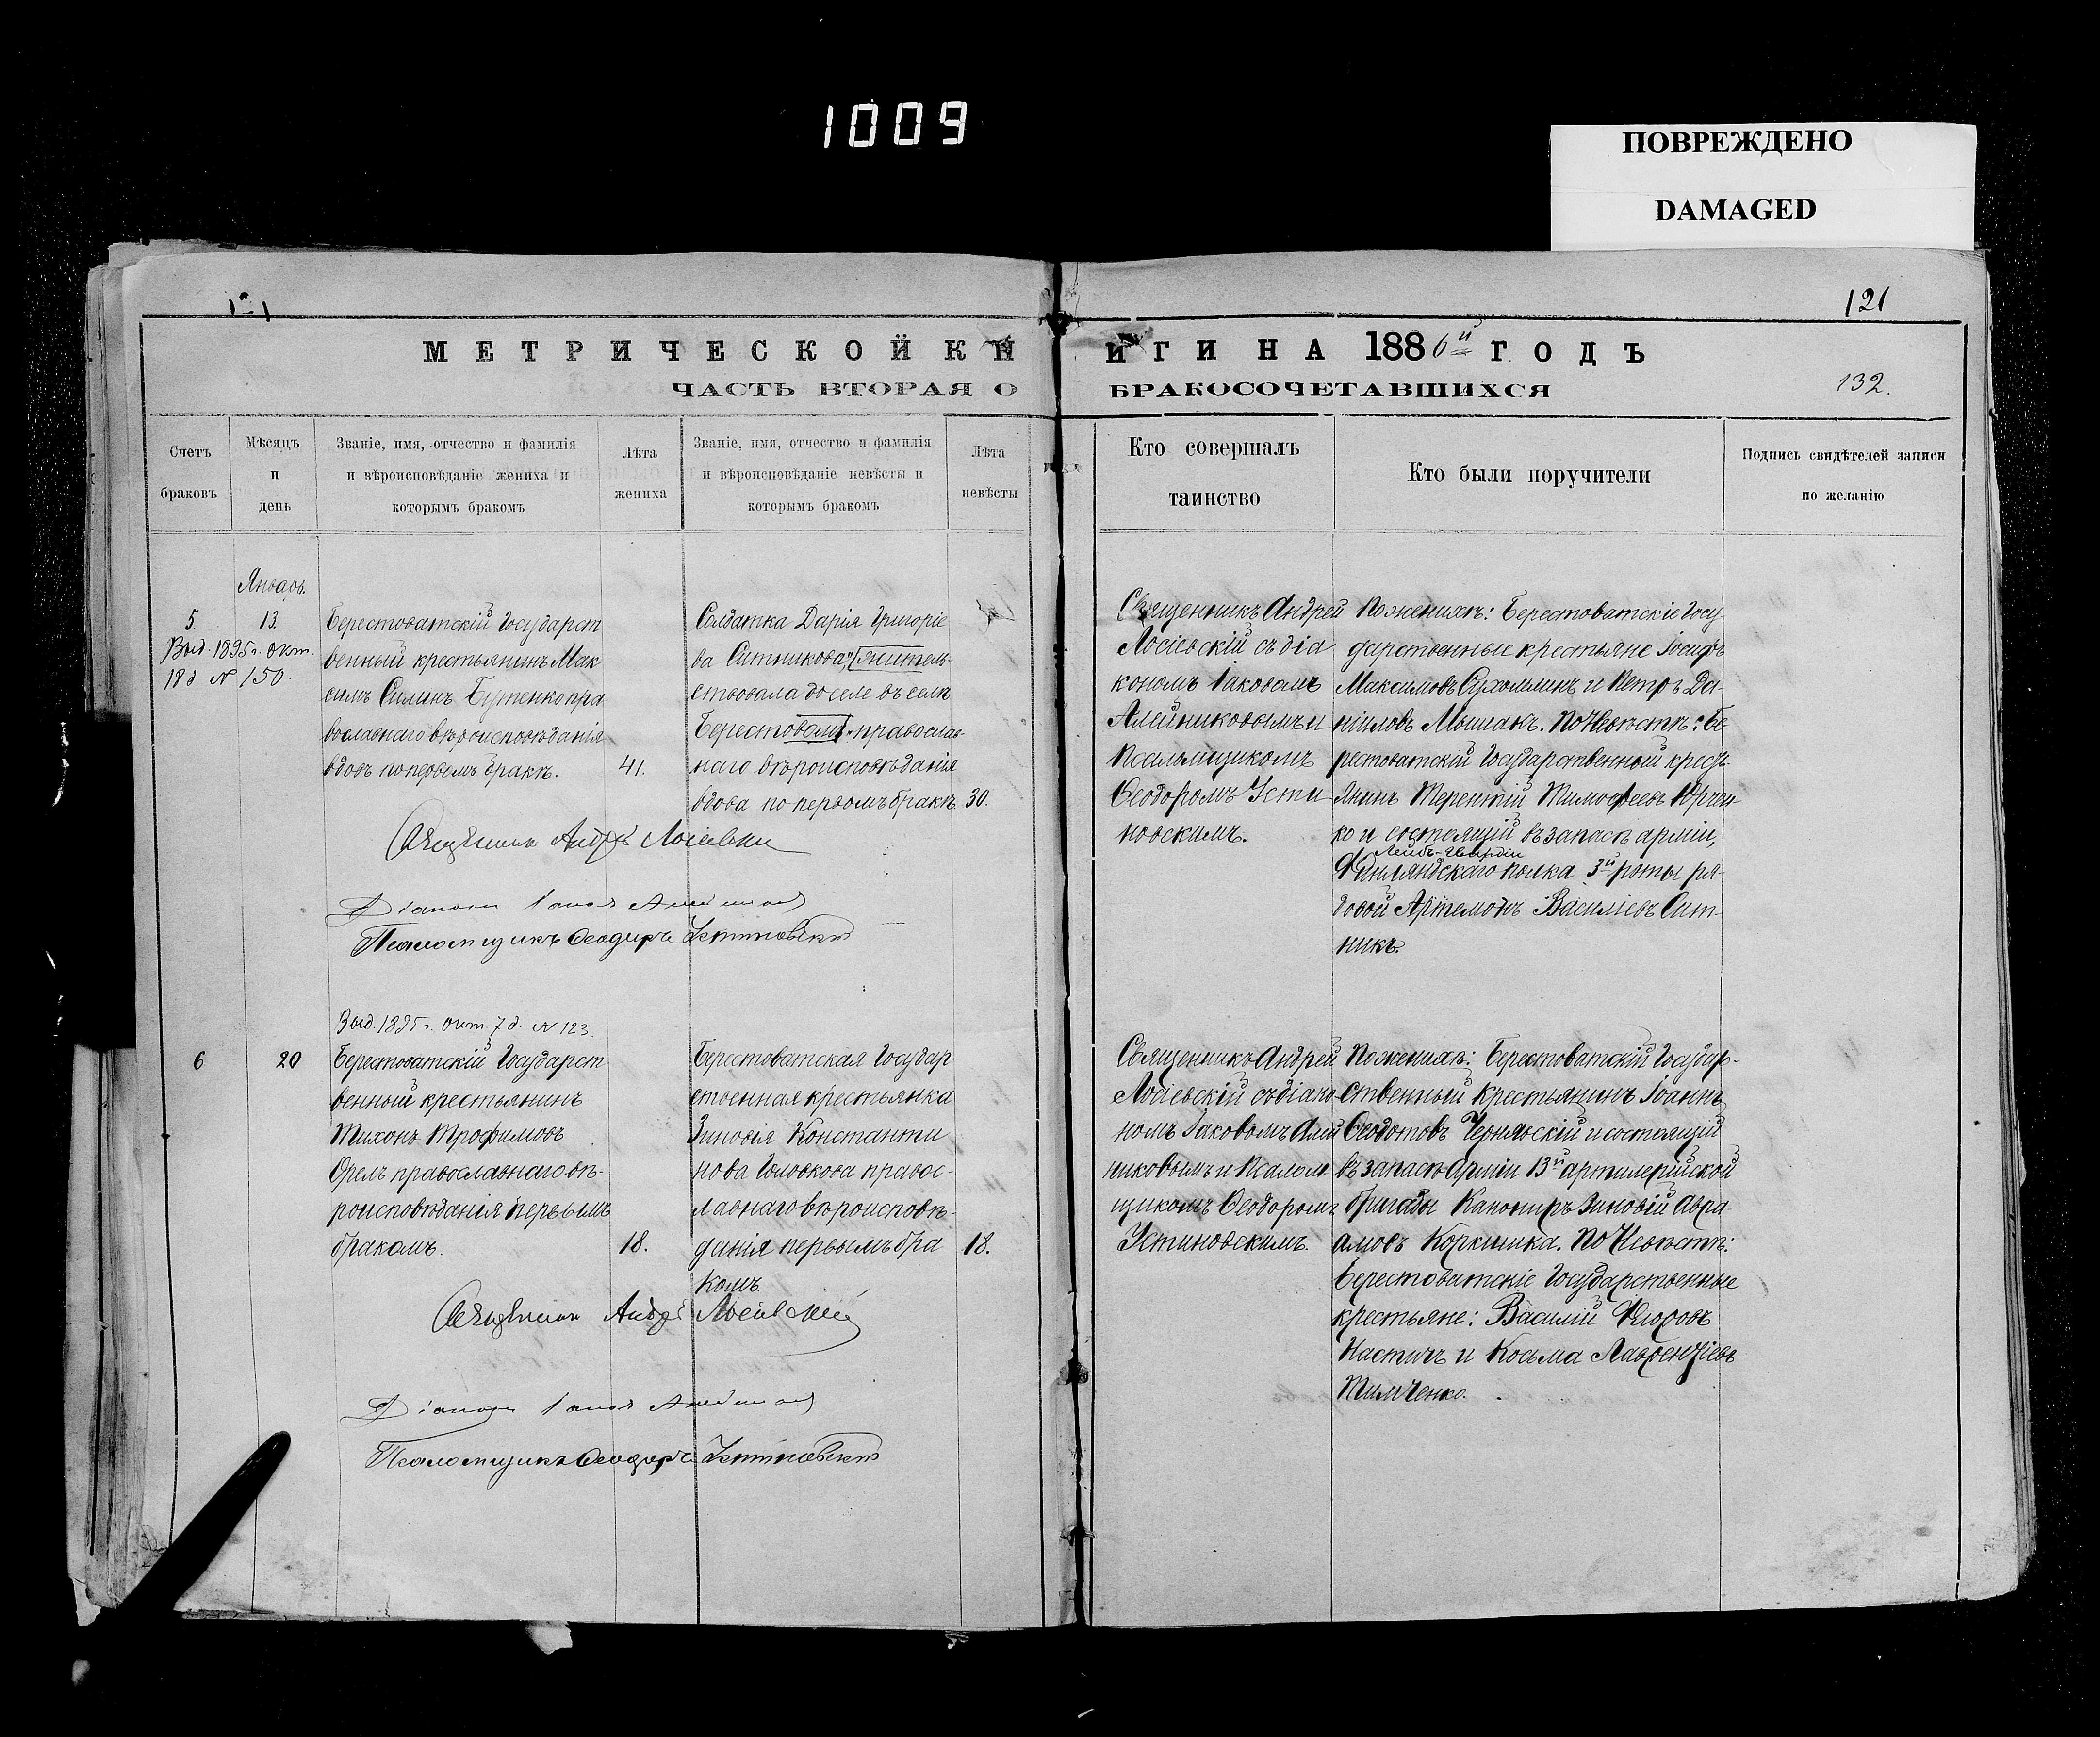 1009
ПОВРЕЖДЕНО
DAMAGED
121
МЕТРИЧЕСКОЙ КНИГИ НА 1886й ГОДЪ
ЧАСТЬ ВТОРАЯ О БРАКОСОЧЕТАВШИХСЯ
132.
Счетъ
браковъ
Мѣсяцъ
и
день
Званіе, имя, отчество и фамилія
и вѣроисповѣданіе жениха и
которымъ бракомъ
Лѣта
жениха
Званіе, имя, отчество и фамилія
и вѣроисповѣданіе невѣсты и
которымъ бракомъ
Лѣта
невѣсты
Кто совершалъ
таинство
Кто были поручители
Подпись свидѣтелей записи
по желанію
Январь.
5.
13.
Выд. 1895 г. окт.
18 д № 150.
Берестоватскій Государст
венный крестьянинъ Мак
симъ Силинъ Бутенко пра
вославнаго вѣроисповѣданія
вдовъ по первомъ бракѣ.
41.
Солдатка Дарія Григоріе
ва Ситникова, "жительствовала доселе въ селѣ
Берестовомъ" православ
наго вѣроисповѣданія
вдова по первомъ бракѣ
30.
Священникъ Андрей
Лосіевскій съ діа
кономъ Іаковомъ
Алейниковымъ и
Псаломщикомъ
Ѳеодоромъ Усти
новскимъ.
По женихѣ: Берестоватскіе Госу
дарственные крестьяне Іосифъ
Максимовъ Сухомлинъ и Петръ Да-
ніиловъ Мышакъ. По Невѣстѣ: Бе
рестоватскій Государственный крестъ
янинъ Терентій Тимофеевъ Юрчен
ко и состоящій въ запасѣ арміи,
Лейбъ-Гвардіи
Финляндскаго полка 3й роты ря
довой Артемонъ Василіевъ Сит-
никъ.
Священникъ Андрей Лосіевскій
Діаконъ Іаковъ Алейниковъ
Псаломщикъ Ѳеодоръ Устиновскій
Выд. 1895 г. Окт. 7 д. № 123.
6
20
Берестоватскій Государст-
венный крестьянинъ
Тихонъ Трофимовъ
Орелъ православнаго вѣ-
роисповѣданія первымъ
бракомъ.
18.
Берестоватская Государ
ственная крестьянка
Зиновія Константи
нова Головкова правос-
лавнаго вѣроисповѣ-
данія первымъ бра
комъ.
18.
Священникъ Андрей
Лосіевскій съ діако
номъ Іаковомъ Алей
никовымъ и Псалом
щикомъ Ѳеодоромъ
Устиновскимъ.
По женихѣ: Берестоватскій Государ-
ственный крестьянинъ Іоаннъ
Ѳеодотовъ Чернявскій и состоящій
въ запасѣ арміи 13й артилерійской
бригады Канониръ Зиновій Авра
амовъ Коркишка. По Невѣстѣ:
Берестоватскіе Государственные
крестьяне: Василій Флоровъ
Настичъ и Косьма Лаврентіевъ
Тимченко.
Священникъ Андрей Лосіевскій
Діаконъ Іаковъ Алейниковъ
Псаломщикъ Ѳеодоръ Устиновскій